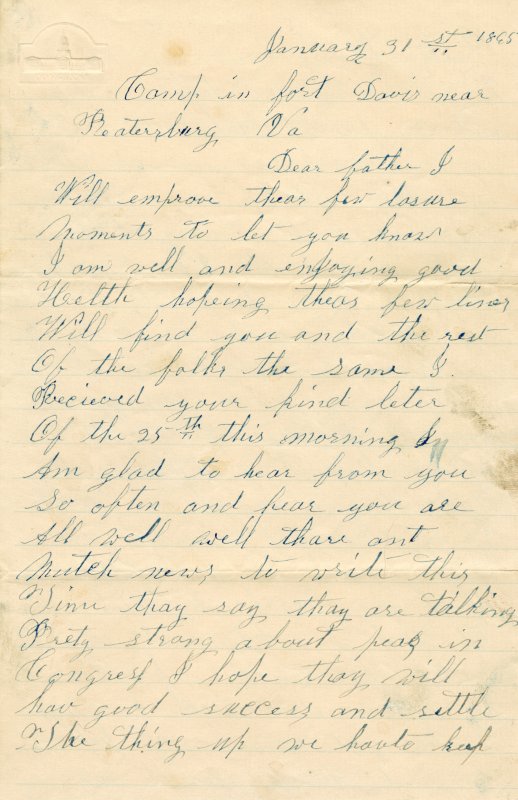 January 31 st 1865
Camp in fort Davis near
Peatersburg Va
Dear father I
Will emprove thear few losure
Moments to let you know
I am well and enjoying good
Helth hopeing theas few lines
Will find you and the rest
Of the folks the same I
Recieved your kind leter
Of the 25 th this morning I
Am glad to hear from you
So often and hear you are
All well well thare ant
Mutch news to write this
Time thay say thay are talking
Prety strong about peas in
Congress I hope thay will
hav good success and settle
The thing up we havto keep